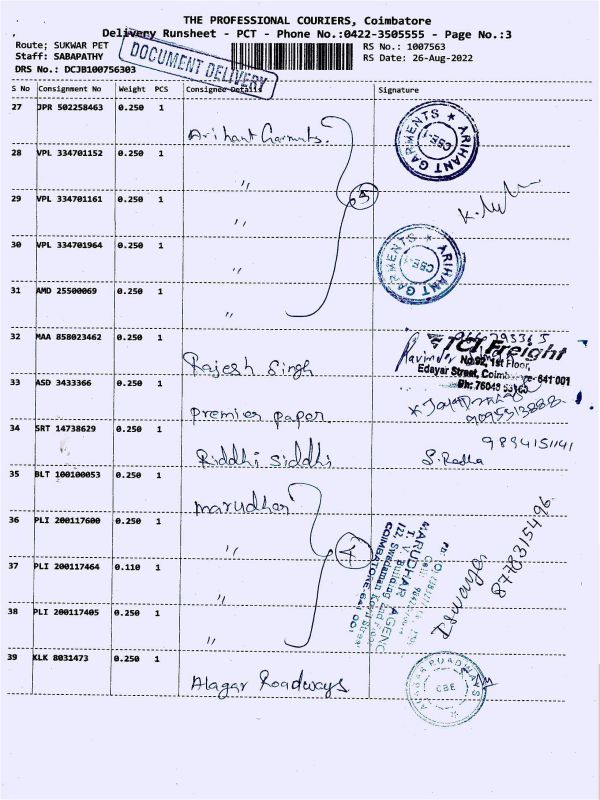 THE PROFESSIONAL COURIERS, Coimbatore
Delivery Runsheet - PCT - Phone No.:0422-3505555 - Page No.:3
Route; SUKWAR PET RS No.: 1007563
Staff: SABAPATHY RS Date: 26-Aug-2022
DRS No.: DCJB100756303
DOCUMENT DELIVERY
S No Consignment No Weight PCS Consignee Details Signature
27 JPR 502258463 0.250 1
Arihant Garments.
ARIHANT GARMENTS ★ CBE-1
28 VPL 334701152 0.250 1
"
29 VPL 334701161 0.250 1
" 5
30 VPL 334701964 0.250 1
"
ARIHANT GARMENTS ★ CBE-1
31 AMD 25500069 0.250 1
"
32 MAA 858023462 0.250 1
Rajesh Singh
TCI Freight
No.92, 1st Floor,
Edayar Street, 641 001
33 ASD 3433366 0.250 1
Premier paper
34 SRT 14738629 0.250 1
9894151141
Riddhi siddhi S. Radha
35 BLT 100100053 0.250 1
marudhar
36 PLI 200117600 0.250 1
" 4
MARUDHAR AGENC
COIMBATORE-641 001
8778315496
37 PLI 200117464 0.110 1
"
38 PLI 200117405 0.250 1
"
39 KLK 8031473 0.250 1
Alagar Roadways
ALAGAR ROADWAYS CBE